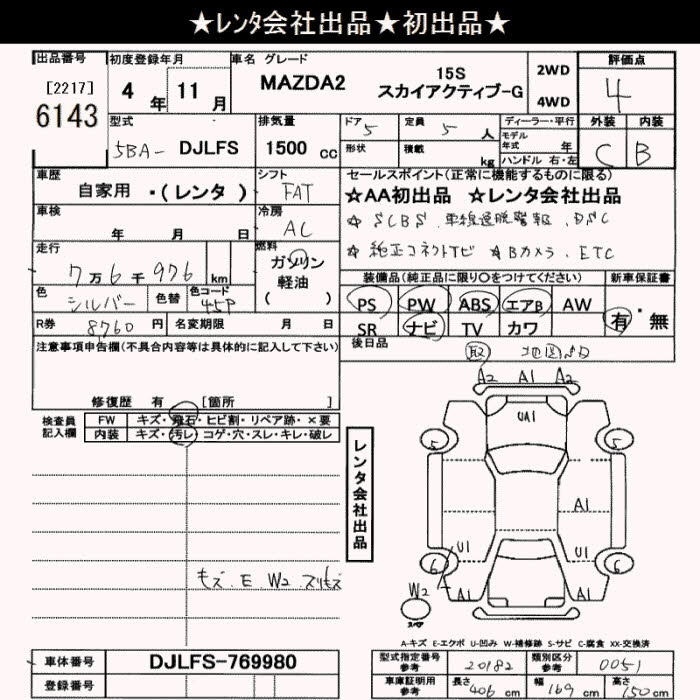 ★レンタ会社出品★初出品★
出品番号 初度登録年月 車名 グレード 評価点
[2217] 4年 11月 MAZDA2 15S 2WD 4
6143 スカイアクティブ-G 4WD
型式 排気量 ドア 5 定員 5人 ディーラー・平行 外装 内装
5BA- DJLFS 1500cc 形状 積載 kg モデル年式 年 C B
ハンドル 右・左
車歴 シフト セールスポイント(正常に機能するものに限る)
自家用 ・(レンタ) FAT ☆AA初出品 ☆レンタ会社出品
車検 冷房 ☆SCBS.車線逸脱警報.DSC
年 月 日 AC ☆純正コネクトTV ☆Bカメラ.ETC
走行 燃料
7万6千976km ガソリン 装備品(純正品に限り○をつけてください) 新車保証書
軽油 PS PW ABS エアB AW 有・無
色 シルバー 色替 色コード 45P ( ) SR ナビ TV カワ
R券 8760円 名変期限 月 日 後日品
注意事項申告欄(不具合内容等は具体的に記入して下さい) 取 地図SD
修復歴 有 [箇所 ]
A2 A1 A2
検査員 FW キズ・飛石・ヒビ割・リペア跡・×要
記入欄 内装 キズ・汚レ・コゲ・穴・スレ・キレ・破レ
レンタ会社出品
UA1
5 5
A1
U1 U1
6 6
W2 A1 A1
モズ.E.W2 スリキズ
A-キズ E-エクボ U-凹み W-補修跡 S-サビ C-腐食 XX-交換済
車体番号 DJLFS-769980 型式指定番号 参考 20182 類別区分 参考 0051
登録番号 車庫証明用 参考 長さ 406cm 幅 169cm 高さ 150cm